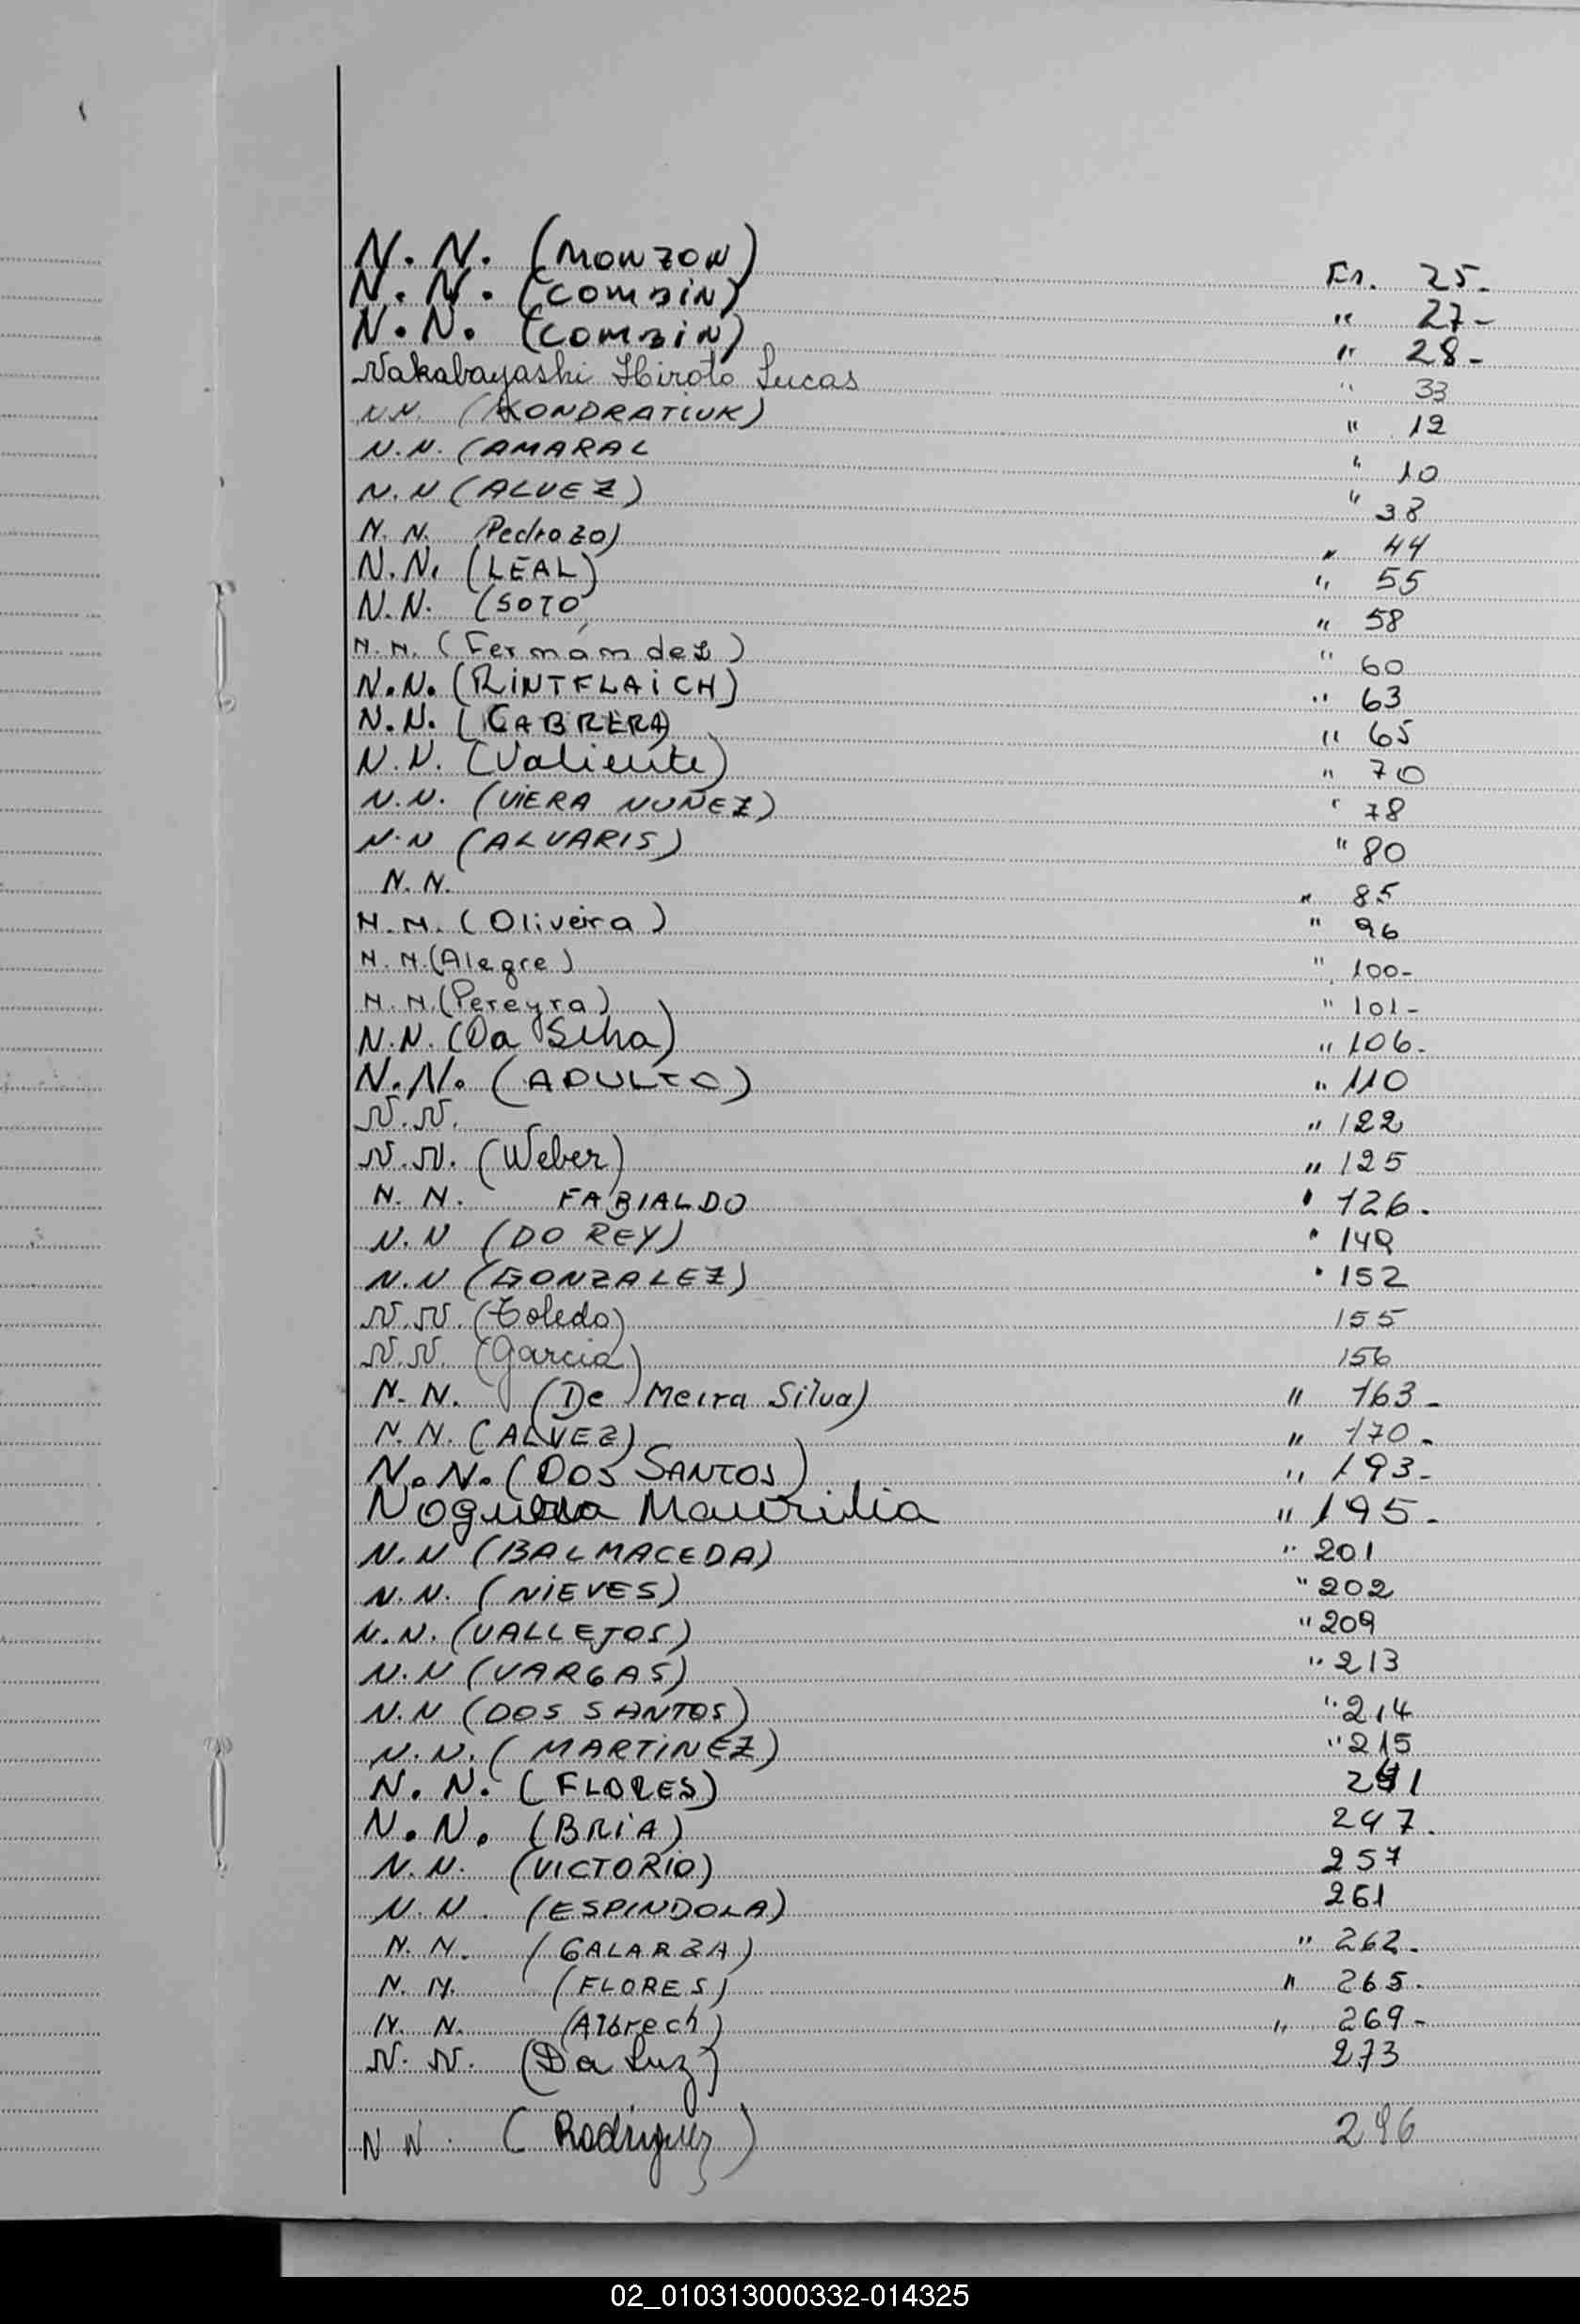 N. N. (MONZON) Fs. 25-
N. N. (COMBIN) " 27-
N. N. (COMBIN) " 28-
Nakabayashi Hiroto Lucas " 33
N.N. (KONDRATIUK) " 12
N.N. (AMARAL " 10
N.N (ALVEZ) " 38
N. N. (Pedrozo) " 44
N.N. (LEAL) " 55
N.N. (SOTO " 58
N.N. (Fernández) " 60
N.N. (RINTFLAICH) " 63
N.N. (CABRERA) " 65
N.N. (Valiente) " 70
N.N. (VIERA NUÑEZ) " 78
N.N (ALVARIS) " 80
N.N. " 85
N.N. (Oliveira) " 96
N.N. (Alegre) " 100-
N.N. (Pereyra) " 101-
N.N. (Da Silva) " 106-
N.N. (ADULTO) " 110
N.N. " 122
N.N. (Weber) " 125
N. N. FABIALDO " 126-
N.N (DO REY) " 149
N.N (GONZALEZ) " 152
N.N. (Toledo) 155
N.N. (Garcia) 156
N. N. (De Meira Silva) " 163-
N.N. (ALVEZ) " 170-
N.N. (DOS SANTOS) " 193-
Noguera Maurilia " 195-
N.N (BALMACEDA) " 201
N.N. (NIEVES) " 202
N.N. (VALLEJOS) " 209
N.N (VARGAS) " 213
N.N (DOS SANTOS) " 214
N.N. (MARTINEZ) " 215
N. N. (FLORES) 241
N. N. (BRIA) 247.
N.N. (VICTORIO) 257
N.N. (ESPINDOLA) 261
N. N. (GALARZA) " 262-
N. N. (FLORES) " 265-
N. N. (Albrech) " 269-
N. N. (Da Luz) 273
N N. (Rodriguez) 296
02_010313000332-014325